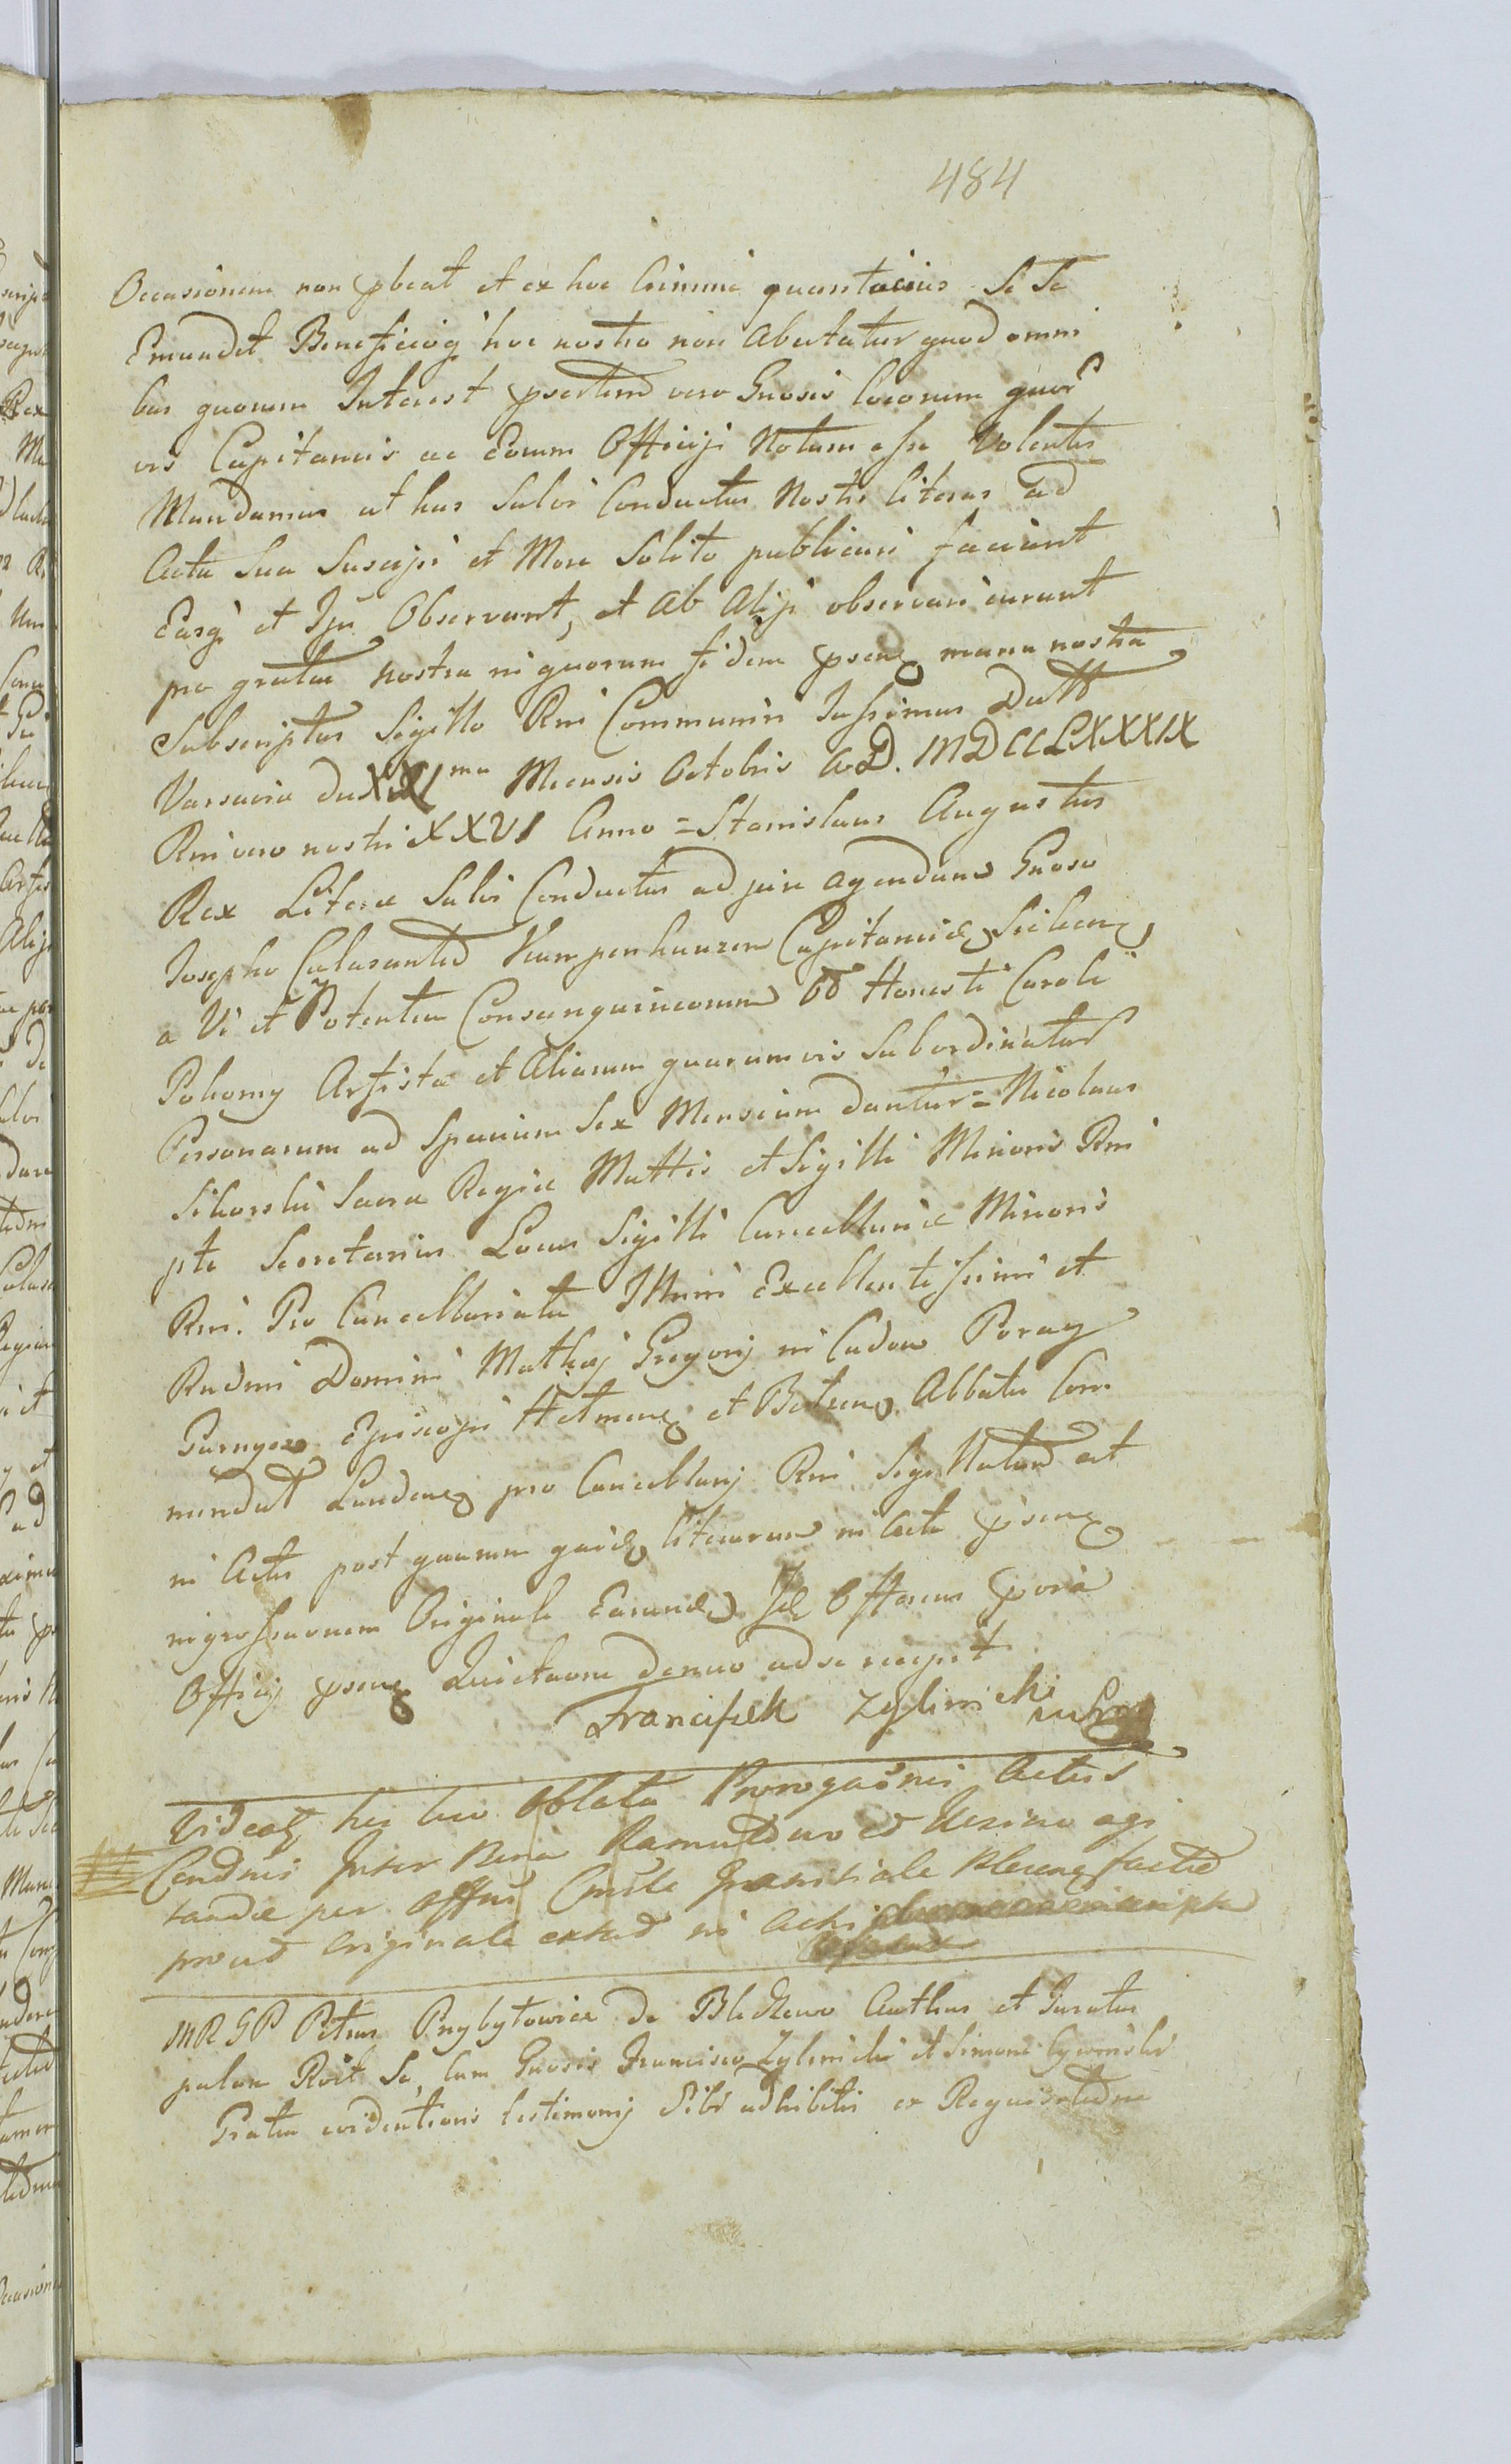 484
Occasionem non pbeat et ex hoc Crimine quantocius Se Se
Emundet Beneficioq hoc nostro non Abutatur quod omni
bus quorum Interest psertim vero Gnosis locorum quor
vis Capitaneis ac Eorum Officiji Notum esse Volentes
Mandamus ut has Salvi Conductus Nostri literas ad
Acta Sua Suscipi et More Solito publicari faciant
Easq et Ipsi Observent, et Ab Alijs observari curent
pro gratia nostra in quorum fidem psens manu nostra
Subscriptas Sigillo Rni Communiri Jussimus Datt
Varsavia die XXIma Mensis Octobris A.D. MDCCLXXXIX
Rni vero nostri XXVI Anno = Stanislaus Augustus
Rex Litera Salvi Conductus ad jure agendum Gnoso
Josepho Calasantio Kampenhauzen Capitaneid
a Vi et Potentia Consanguineorum oo Honesti Caroli
Pohomy Artista et Aliarum quarumvis Subordinatar
Personarum ad Spacium Sex Mensium dantur = Nicolaus
Sikorski Sacra Regia Mattis et Sigilli Minoris Rni
pte Secretarius Locus Sigilli Cancellaria Minoris
Rni. Pro Cancellariatu Illmi Excellentissimi et
Rndmi Domini Mathaj Gregorij in Cudow Poray
Garnysz Episcopi et Abbatis Com
mendat Landens pro Cancellarij Rni Sigillatum est
in Actis post quarum quid literarum in Acta psens
ingrossavonem Originale Earund Id Offerens
Officij psens Quietavone denuo ad se recepit
Francifzek Zylinicki
Videatq hic loco Oblata Prorogaōnis Actus
Condnis Inter Ramultowo et agi
tanda per Offm factad
prout Originale extad in Actis
MRGP Petrus Przybytowicz de Bledzewo Authus et Juratus
palam Roit Se, Cum Gnosis Francisco Zylinicki et Simone
Gratia evidentioris testimonij Sibi adhibitis ex Requisitione